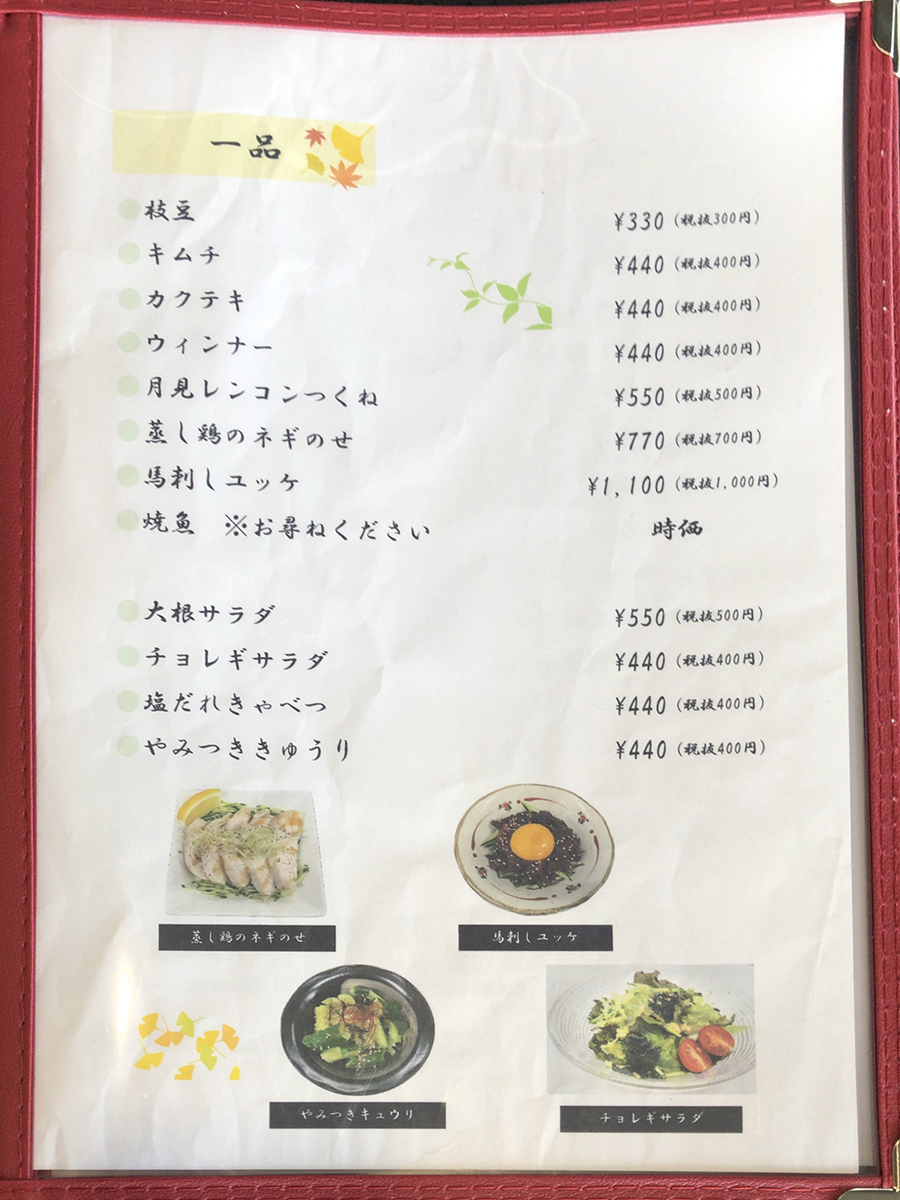 一品
枝豆 ¥330(税抜300円)
キムチ ¥440(税抜400円)
カクテキ ¥440(税抜400円)
ウィンナー ¥440(税抜400円)
月見レンコンつくね ¥550(税抜500円)
蒸し鶏のネギのせ ¥770(税抜700円)
馬刺しユッケ ¥1,100(税抜1,000円)
焼魚 ※お尋ねください 時価
大根サラダ ¥550(税抜500円)
チョレギサラダ ¥440(税抜400円)
塩だれきゃべつ ¥440(税抜400円)
やみつききゅうり ¥440(税抜400円)
蒸し鶏のネギのせ
馬刺しユッケ
やみつきキュウリ
チョレギサラダ